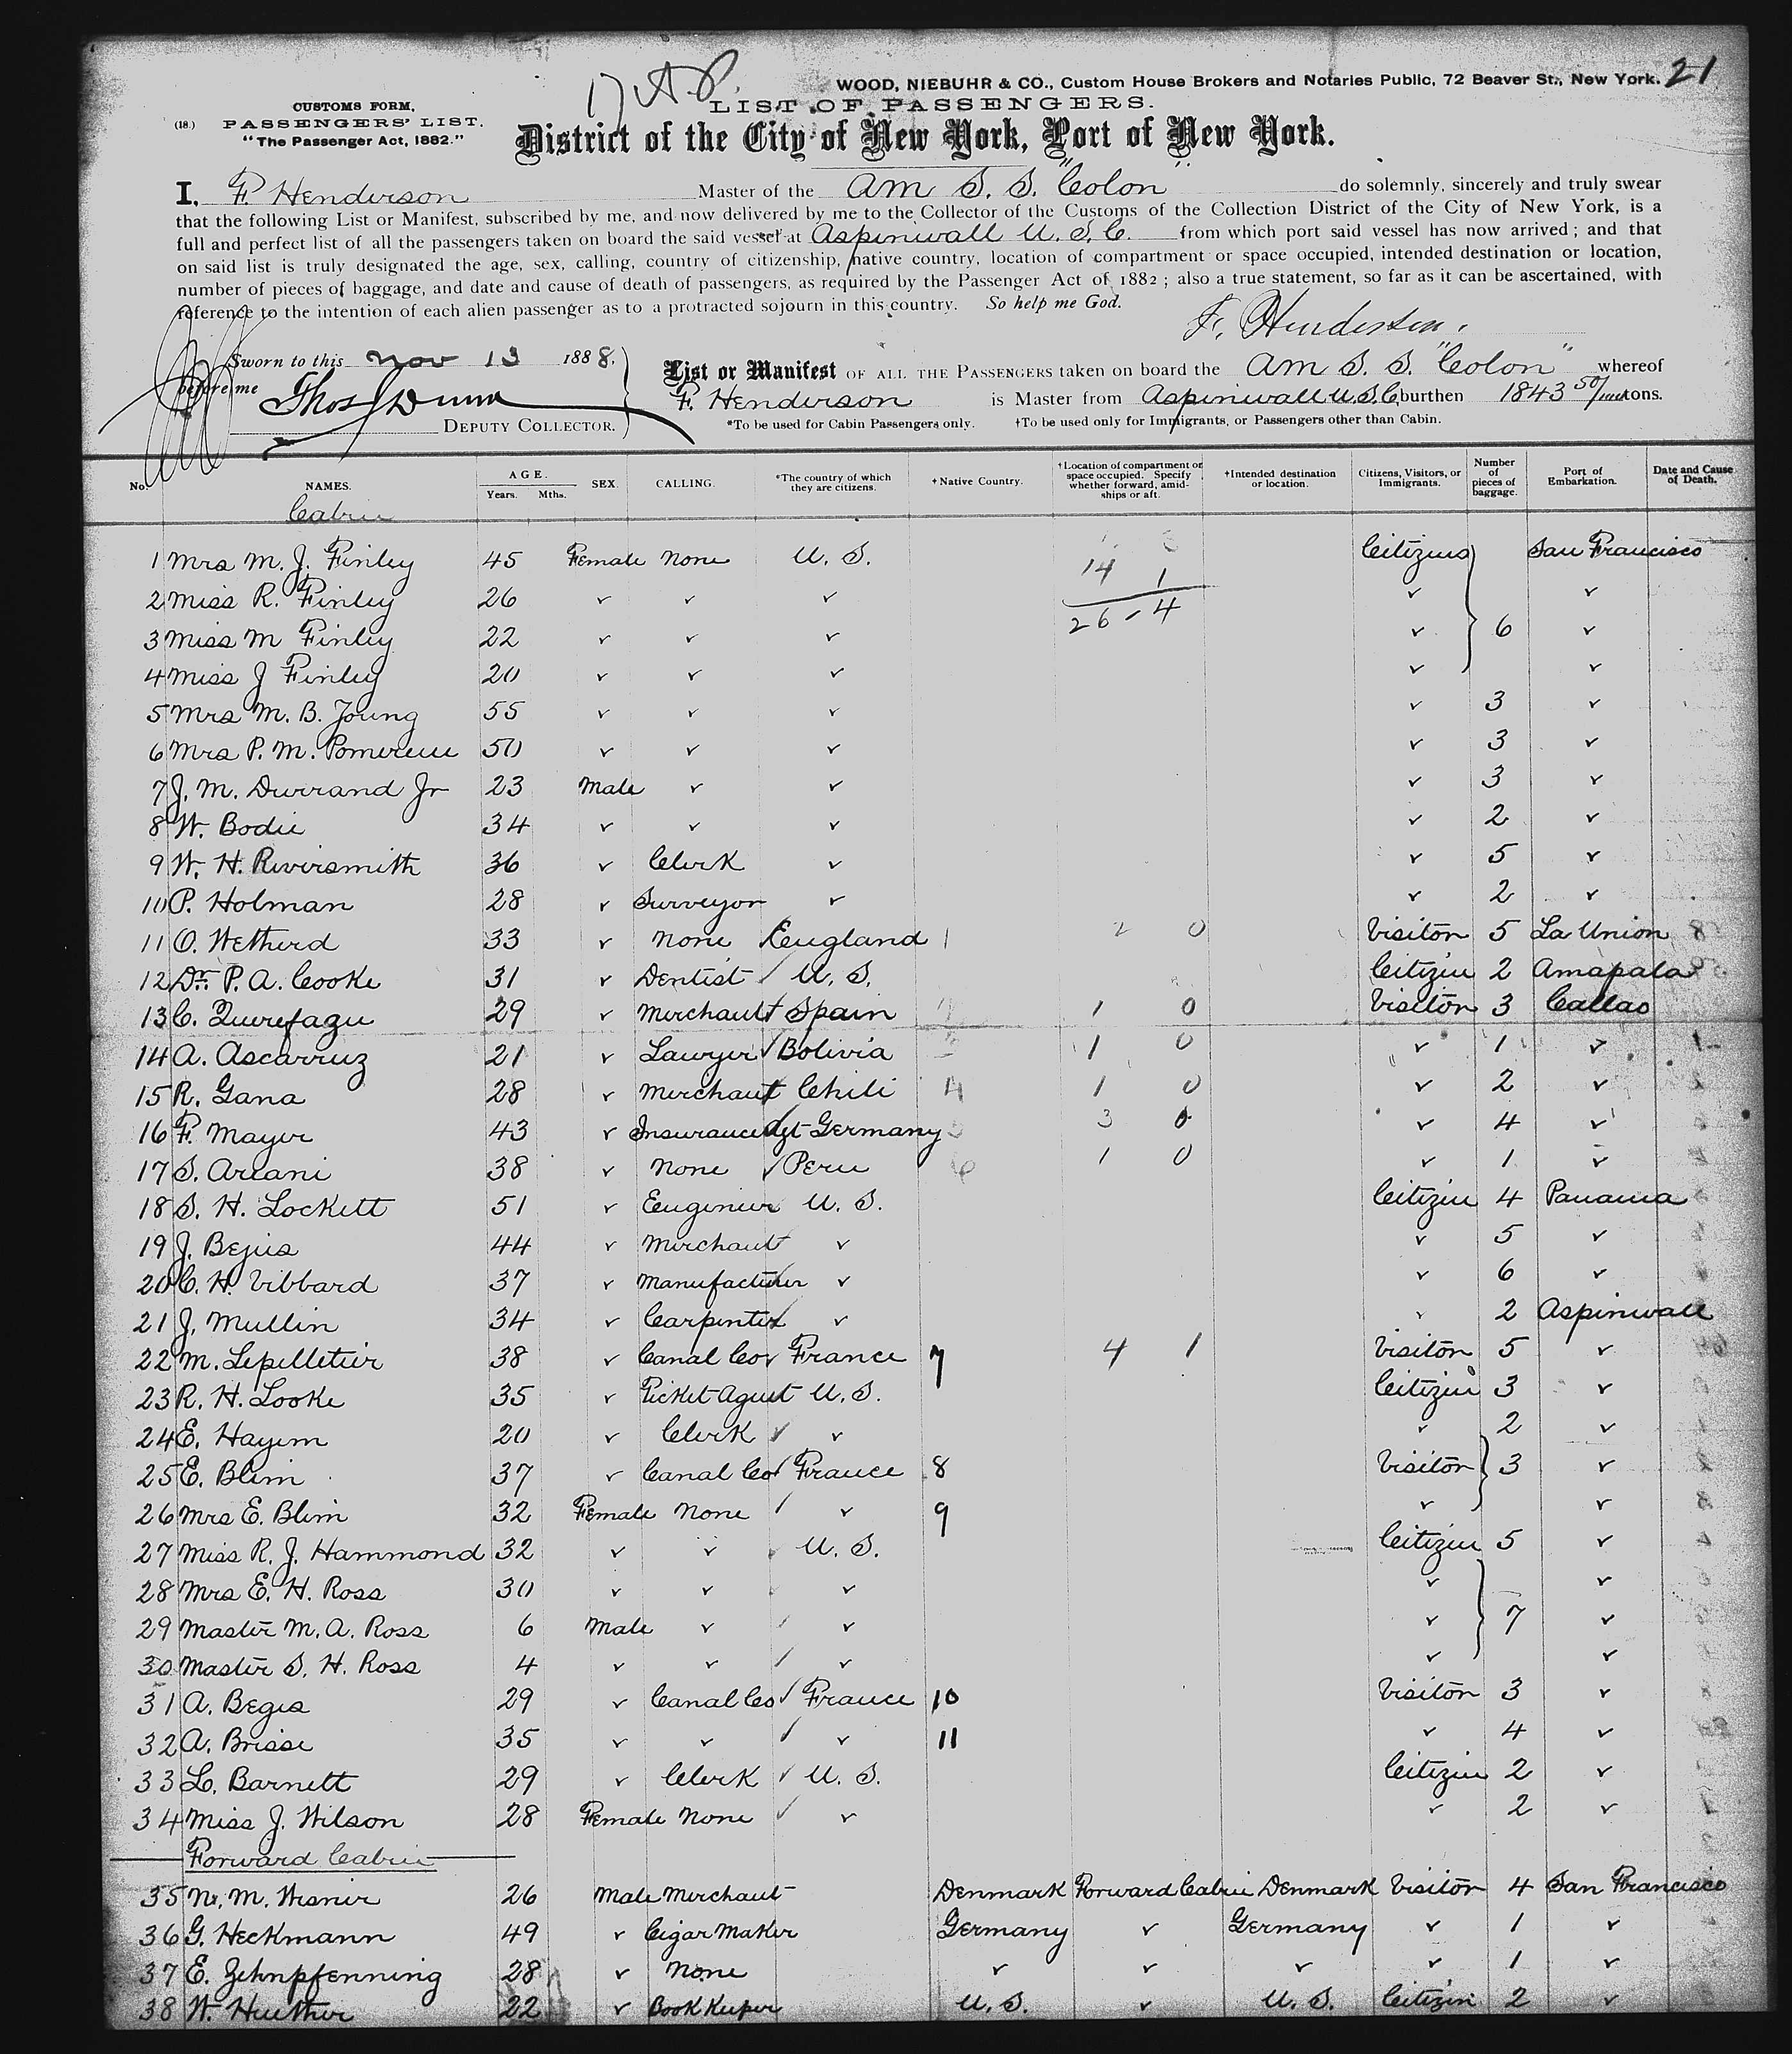 17 A.P.
WOOD, NIEBUHR & CO., Custom House Brokers and Notaries Public, 72 Beaver St., New York. 21
(18.) CUSTOMS FORM.
PASSENGERS' LIST.
"The Passenger Act, 1882."
LIST OF PASSENGERS.
District of the City of New York, Port of New York.
I, F. Henderson Master of the Am S. S. "Colon" do solemnly, sincerely and truly swear
that the following List or Manifest, subscribed by me, and now delivered by me to the Collector of the Customs of the Collection District of the City of New York, is a
full and perfect list of all the passengers taken on board the said vessel at Aspinwall U. S. C. from which port said vessel has now arrived; and that
on said list is truly designated the age, sex, calling, country of citizenship, native country, location of compartment or space occupied, intended destination or location,
number of pieces of baggage, and date and cause of death of passengers, as required by the Passenger Act of 1882; also a true statement, so far as it can be ascertained, with
reference to the intention of each alien passenger as to a protracted sojourn in this country. So help me God.
F. Henderson.
Sworn to this Nov 13 1888.
before me Thos J Dunn
DEPUTY COLLECTOR.
List or Manifest OF ALL THE PASSENGERS taken on board the Am S. S. "Colon" whereof
F. Henderson is Master from Aspinwall U.S.C. burthen 1843 50/ tons.
*To be used for Cabin Passengers only. †To be used only for Immigrants, or Passengers other than Cabin.
No. NAMES. AGE. Years. Mths. SEX. CALLING. *The country of which they are citizens. †Native Country. †Location of compartment or space occupied. Specify whether forward, amidships or aft. †Intended destination or location. Citizens, Visitors, or Immigrants. Number of pieces of baggage. Port of Embarkation. Date and Cause of Death.
Cabin
1 Mrs M. J. Finley 45 Female None U. S. 14 1 Citizens San Francisco
2 Miss R. Finley 26 ✓ ✓ ✓ 26 - 4 ✓ ✓
3 Miss M Finley 22 ✓ ✓ ✓ ✓ 6 ✓
4 Miss J Finley 20 ✓ ✓ ✓ ✓ ✓
5 Mrs M. B. Young 55 ✓ ✓ ✓ ✓ 3 ✓
6 Mrs P. M. Pomerene 50 ✓ ✓ ✓ ✓ 3 ✓
7 J. M. Durrand Jr 23 Male ✓ ✓ ✓ 3 ✓
8 W. Bodie 34 ✓ ✓ ✓ ✓ 2 ✓
9 W. H. Riversmith 36 ✓ Clerk ✓ ✓ 5 ✓
10 P. Holman 28 ✓ Surveyor ✓ ✓ 2 ✓
11 O. Wetherd 33 ✓ None England 1 2 0 Visitor 5 La Union
12 Dr. P. A. Cooke 31 ✓ Dentist ✓ U. S. Citizen 2 Amapala
13 C. Querefazu 29 ✓ Merchant Spain 1 0 Visitor 3 Callao
14 A. Ascarruz 21 ✓ Lawyer ✓ Bolivia 1 0 ✓ 1 ✓
15 R. Gana 28 ✓ Merchant Chili 4 1 0 ✓ 2 ✓
16 F. Mayer 43 ✓ Insurance Agt Germany 5 3 0 ✓ 4 ✓
17 S. Ariani 38 ✓ None ✓ Peru 6 1 0 ✓ 1 ✓
18 S. H. Lockett 51 ✓ Engineer U. S. Citizen 4 Panama
19 J. Bejus 44 ✓ Merchant ✓ ✓ 5 ✓
20 C. H. Vibbard 37 ✓ Manufacturer ✓ ✓ 6 ✓
21 J. Mullin 34 ✓ Carpenter ✓ ✓ 2 Aspinwall
22 M. Lepelletier 38 ✓ Canal Co ✓ France 7 4 1 Visitor 5 ✓
23 R. H. Looke 35 ✓ Ticket Agent U. S. Citizen 3 ✓
24 E. Hayem 20 ✓ Clerk ✓ ✓ ✓ 2 ✓
25 E. Blim 37 ✓ Canal Co ✓ France 8 Visitor 3 ✓
26 Mrs E. Blim 32 Female None ✓ ✓ 9 ✓ ✓
27 Miss R. J. Hammond 32 ✓ ✓ ✓ U. S. Citizen 5 ✓
28 Mrs E. H. Ross 30 ✓ ✓ ✓ ✓ ✓ ✓
29 Master M. A. Ross 6 Male ✓ ✓ ✓ ✓ 7 ✓
30 Master S. H. Ross 4 ✓ ✓ ✓ ✓ ✓ ✓
31 A. Beges 29 ✓ Canal Co ✓ France 10 Visitor 3 ✓
32 A. Brisse 35 ✓ ✓ ✓ ✓ 11 ✓ 4 ✓
33 L. Barnett 29 ✓ Clerk ✓ U. S. Citizen 2 ✓
34 Miss J. Wilson 28 Female None ✓ ✓ ✓ 2 ✓
Forward Cabin
35 N. M. Wesner 26 Male Merchant Denmark Forward Cabin Denmark Visitor 4 San Francisco
36 G. Heckmann 49 ✓ Cigar Maker Germany ✓ Germany ✓ 1 ✓
37 E. Zehnpfenning 28 ✓ None ✓ ✓ ✓ ✓ 1 ✓
38 W. Huether 22 ✓ Book Keeper U. S. ✓ U. S. Citizen 2 ✓